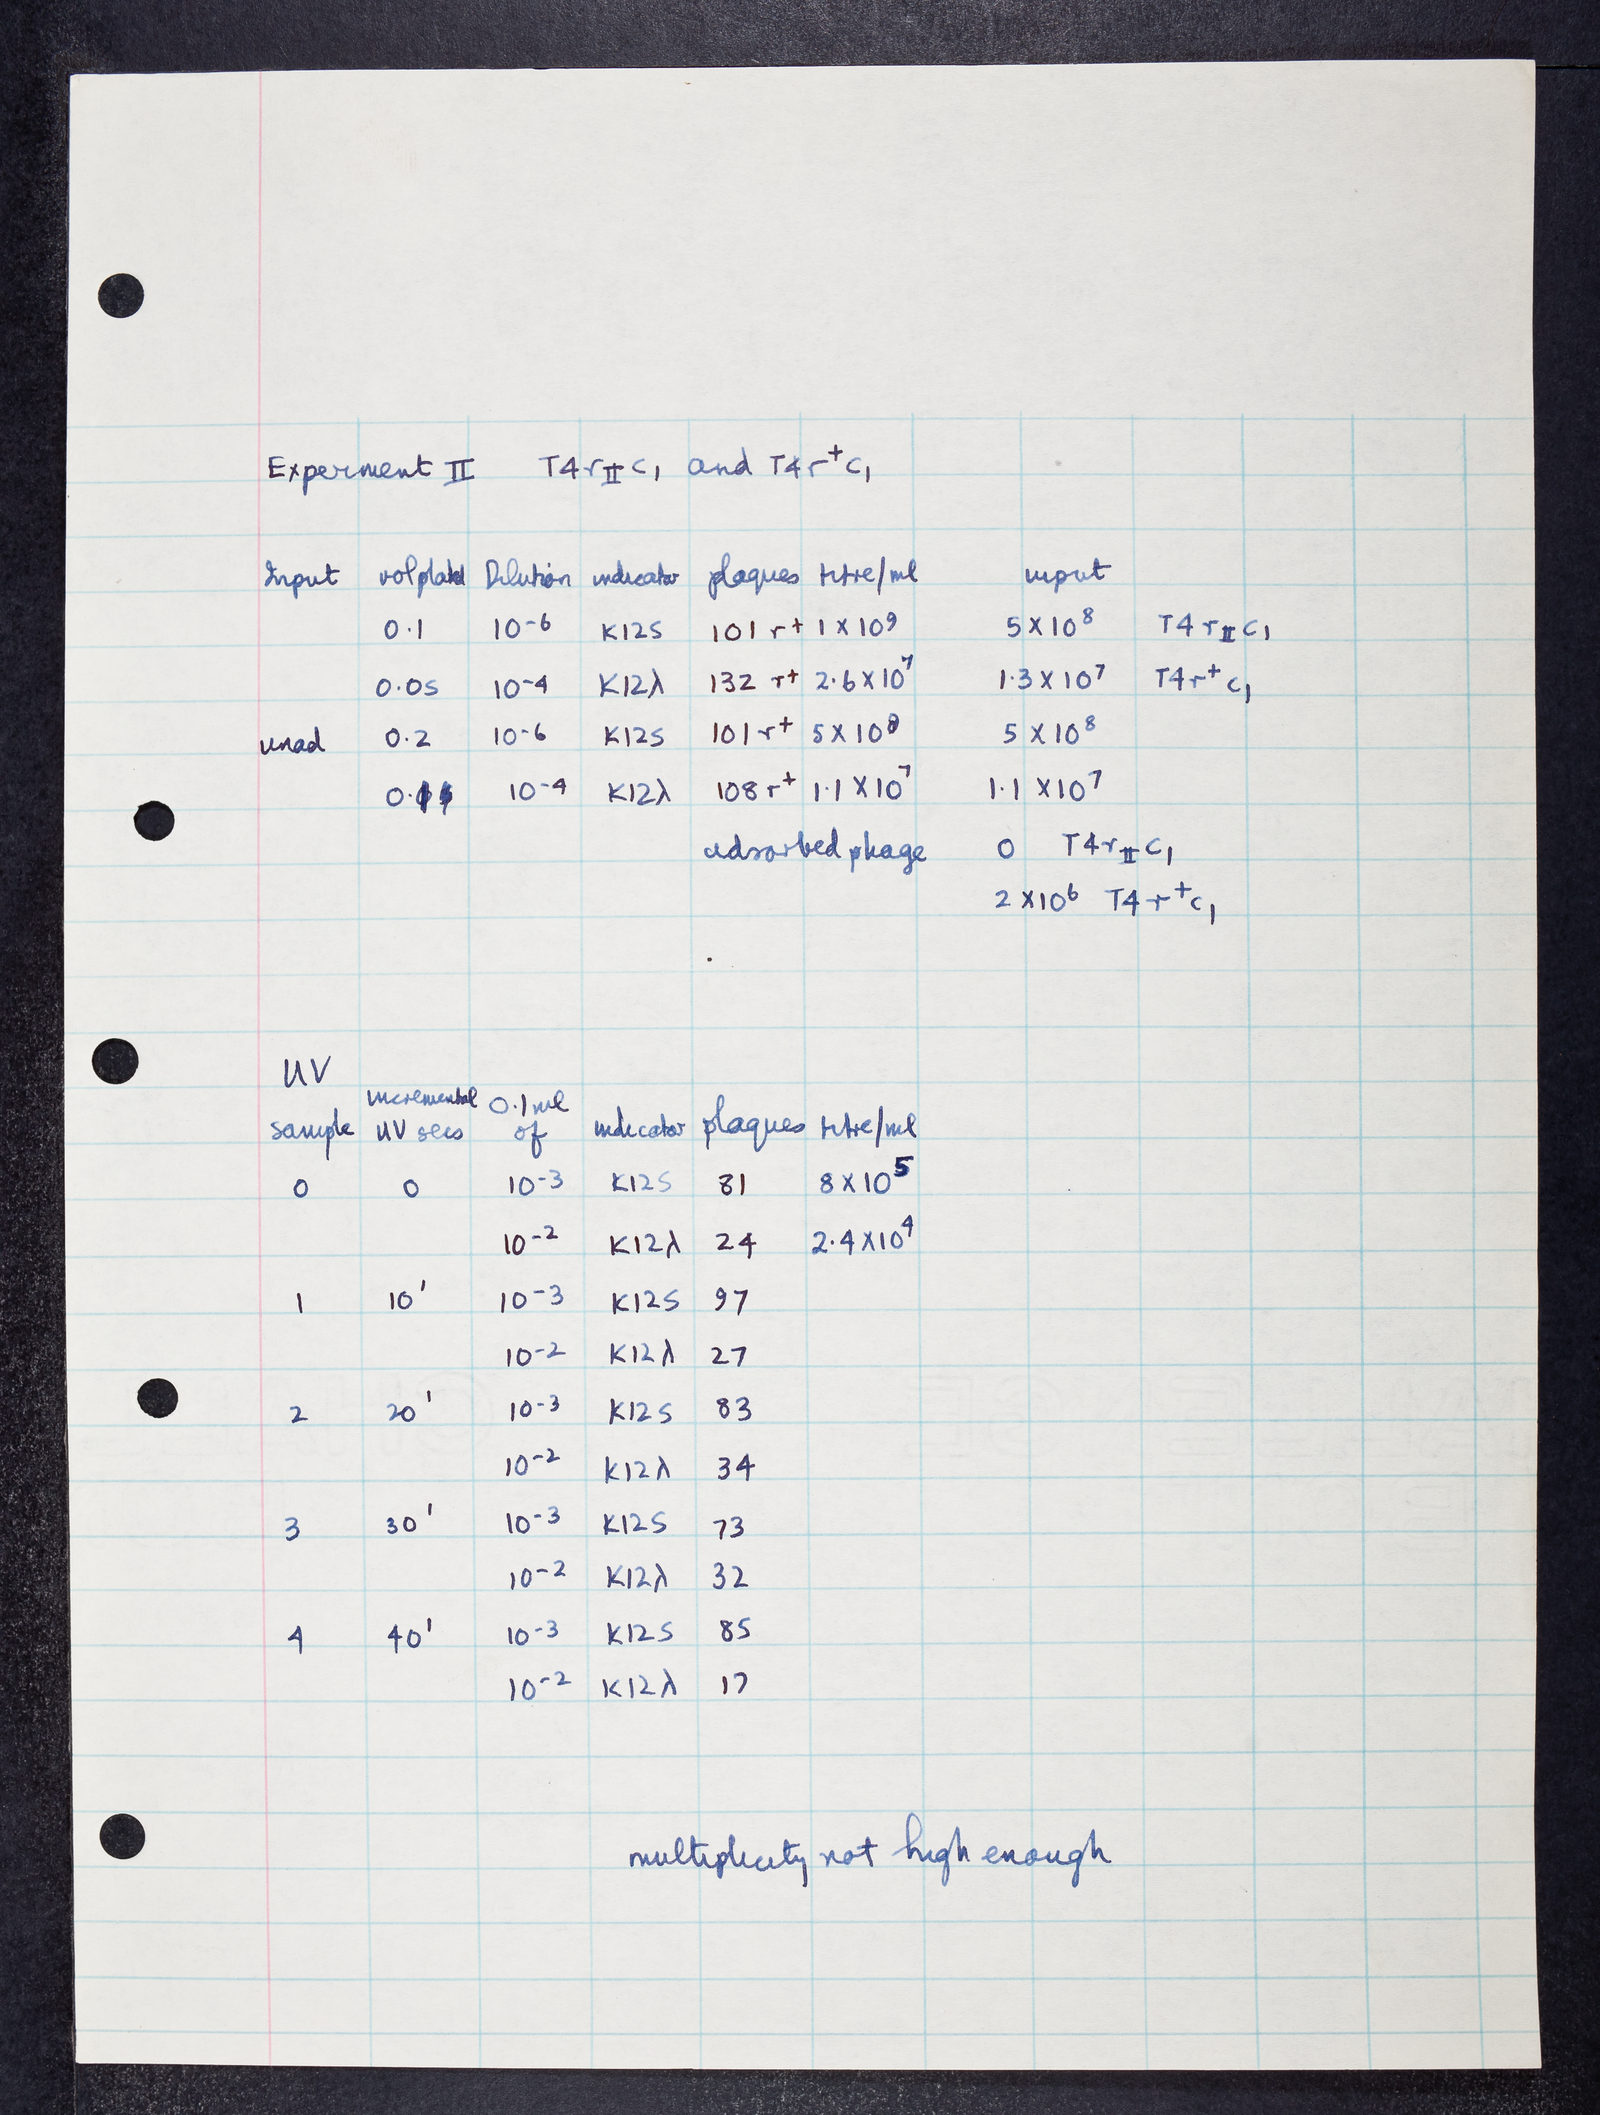 Experment II T4rIIc1 and T4r+c1
Input vol plated Dilution indicator plaques titre/ml input
0.1 10-6 K12S 101 r+ 1 x 109 5 x 108 T4rIIc1
0.05 10-4 K12λ 132 r+ 2.6 x 107 1.3 x 107 T4r+c1
unad 0.2 10-6 K12S 101 r+ 5 x 108 5 x 108
10-4 K12λ 108 r+ 1.1 x 107 1.1 x 107
adsorbed phage 0 T4rIIc1
2 x 106 T4r+c1
UV
sample incremental UV secs 0.1ml of indicator plaques titre/ml
0 0 10-3 K12S 81 8 x 105
10-2 K12λ 24 2.4 x 104
1 10' 10-3 K12S 97
10-2 K12λ 27
2 20' 10-3 K12S 83
10-2 K12λ 34
3 30' 10-3 K12S 73
10-2 K12λ 32
4 40' 10-3 K12S 85
10-2 K12λ 17
multiplicity not high enough